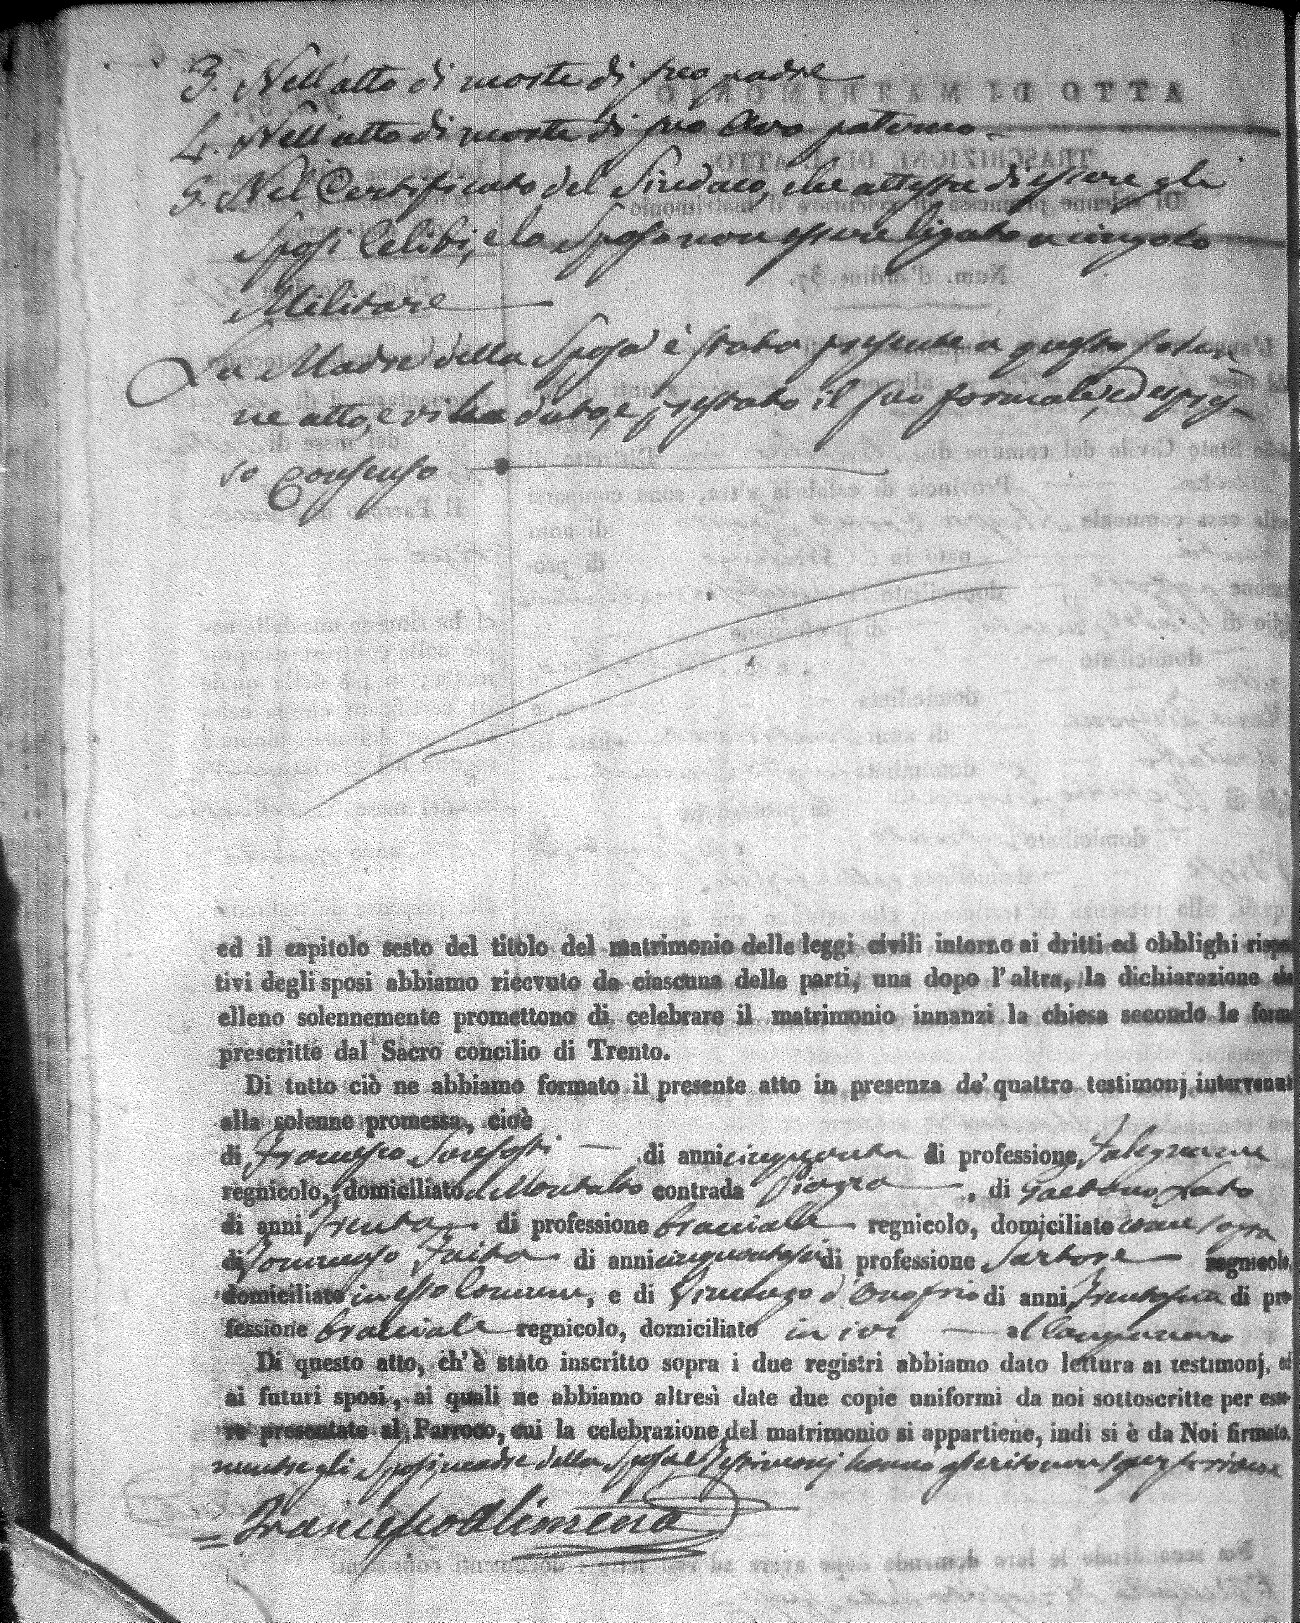 3. Nell'atto di morte di suo padre
4. Nell'atto di morte di suo Avo paterno
5. Nel Certificato del Sindaco, che attesta di essere gli
Sposi Celibi, e lo Sposo non essere ligato a cingolo
Militare
La Madre della Sposa è stata presente a questo solen
ne atto, e vi ha dato, e prestato il suo formale, ed espres
so Consenso
ed il capitolo sesto del titolo del matrimonio delle leggi civili intorno ai dritti ed obblighi rispe
tivi degli sposi abbiamo ricevuto da ciascuna delle parti, una dopo l'altra, la dichiarazione che
elleno solennemente promettono di celebrare il matrimonio innanzi la chiesa secondo le form
prescritte dal Sacro concilio di Trento.
Di tutto ciò ne abbiamo formato il presente atto in presenza de' quattro testimonj intervenuti
alla solenne promessa, cioè
di Francesco di anni cinquanta di professione Falegname
regnicolo, domiciliato a Montalto contrada Piazza, di Gaetano Lato
di anni trenta di professione bracciale regnicolo, domiciliato come sopra
di Tommaso Faita di anni di professione Sartore regnicolo,
domiciliato in esso Comune, e di Vincenzo d'Onofrio di anni di pro
fessione bracciale regnicolo, domiciliato in ivi
Di questo atto, ch'è stato inscritto sopra i due registri abbiamo dato lettura ai testimonj, ed
ai futuri sposi, ai quali ne abbiamo altresì date due copie uniformi da noi sottoscritte per esse
re presentate al Parroco, cui la celebrazione del matrimonio si appartiene, indi si è da Noi firmato,
mentre gli Sposi, madre della Sposa, e Testimonj hanno asserito non saper scrivere
Francesco Alimena